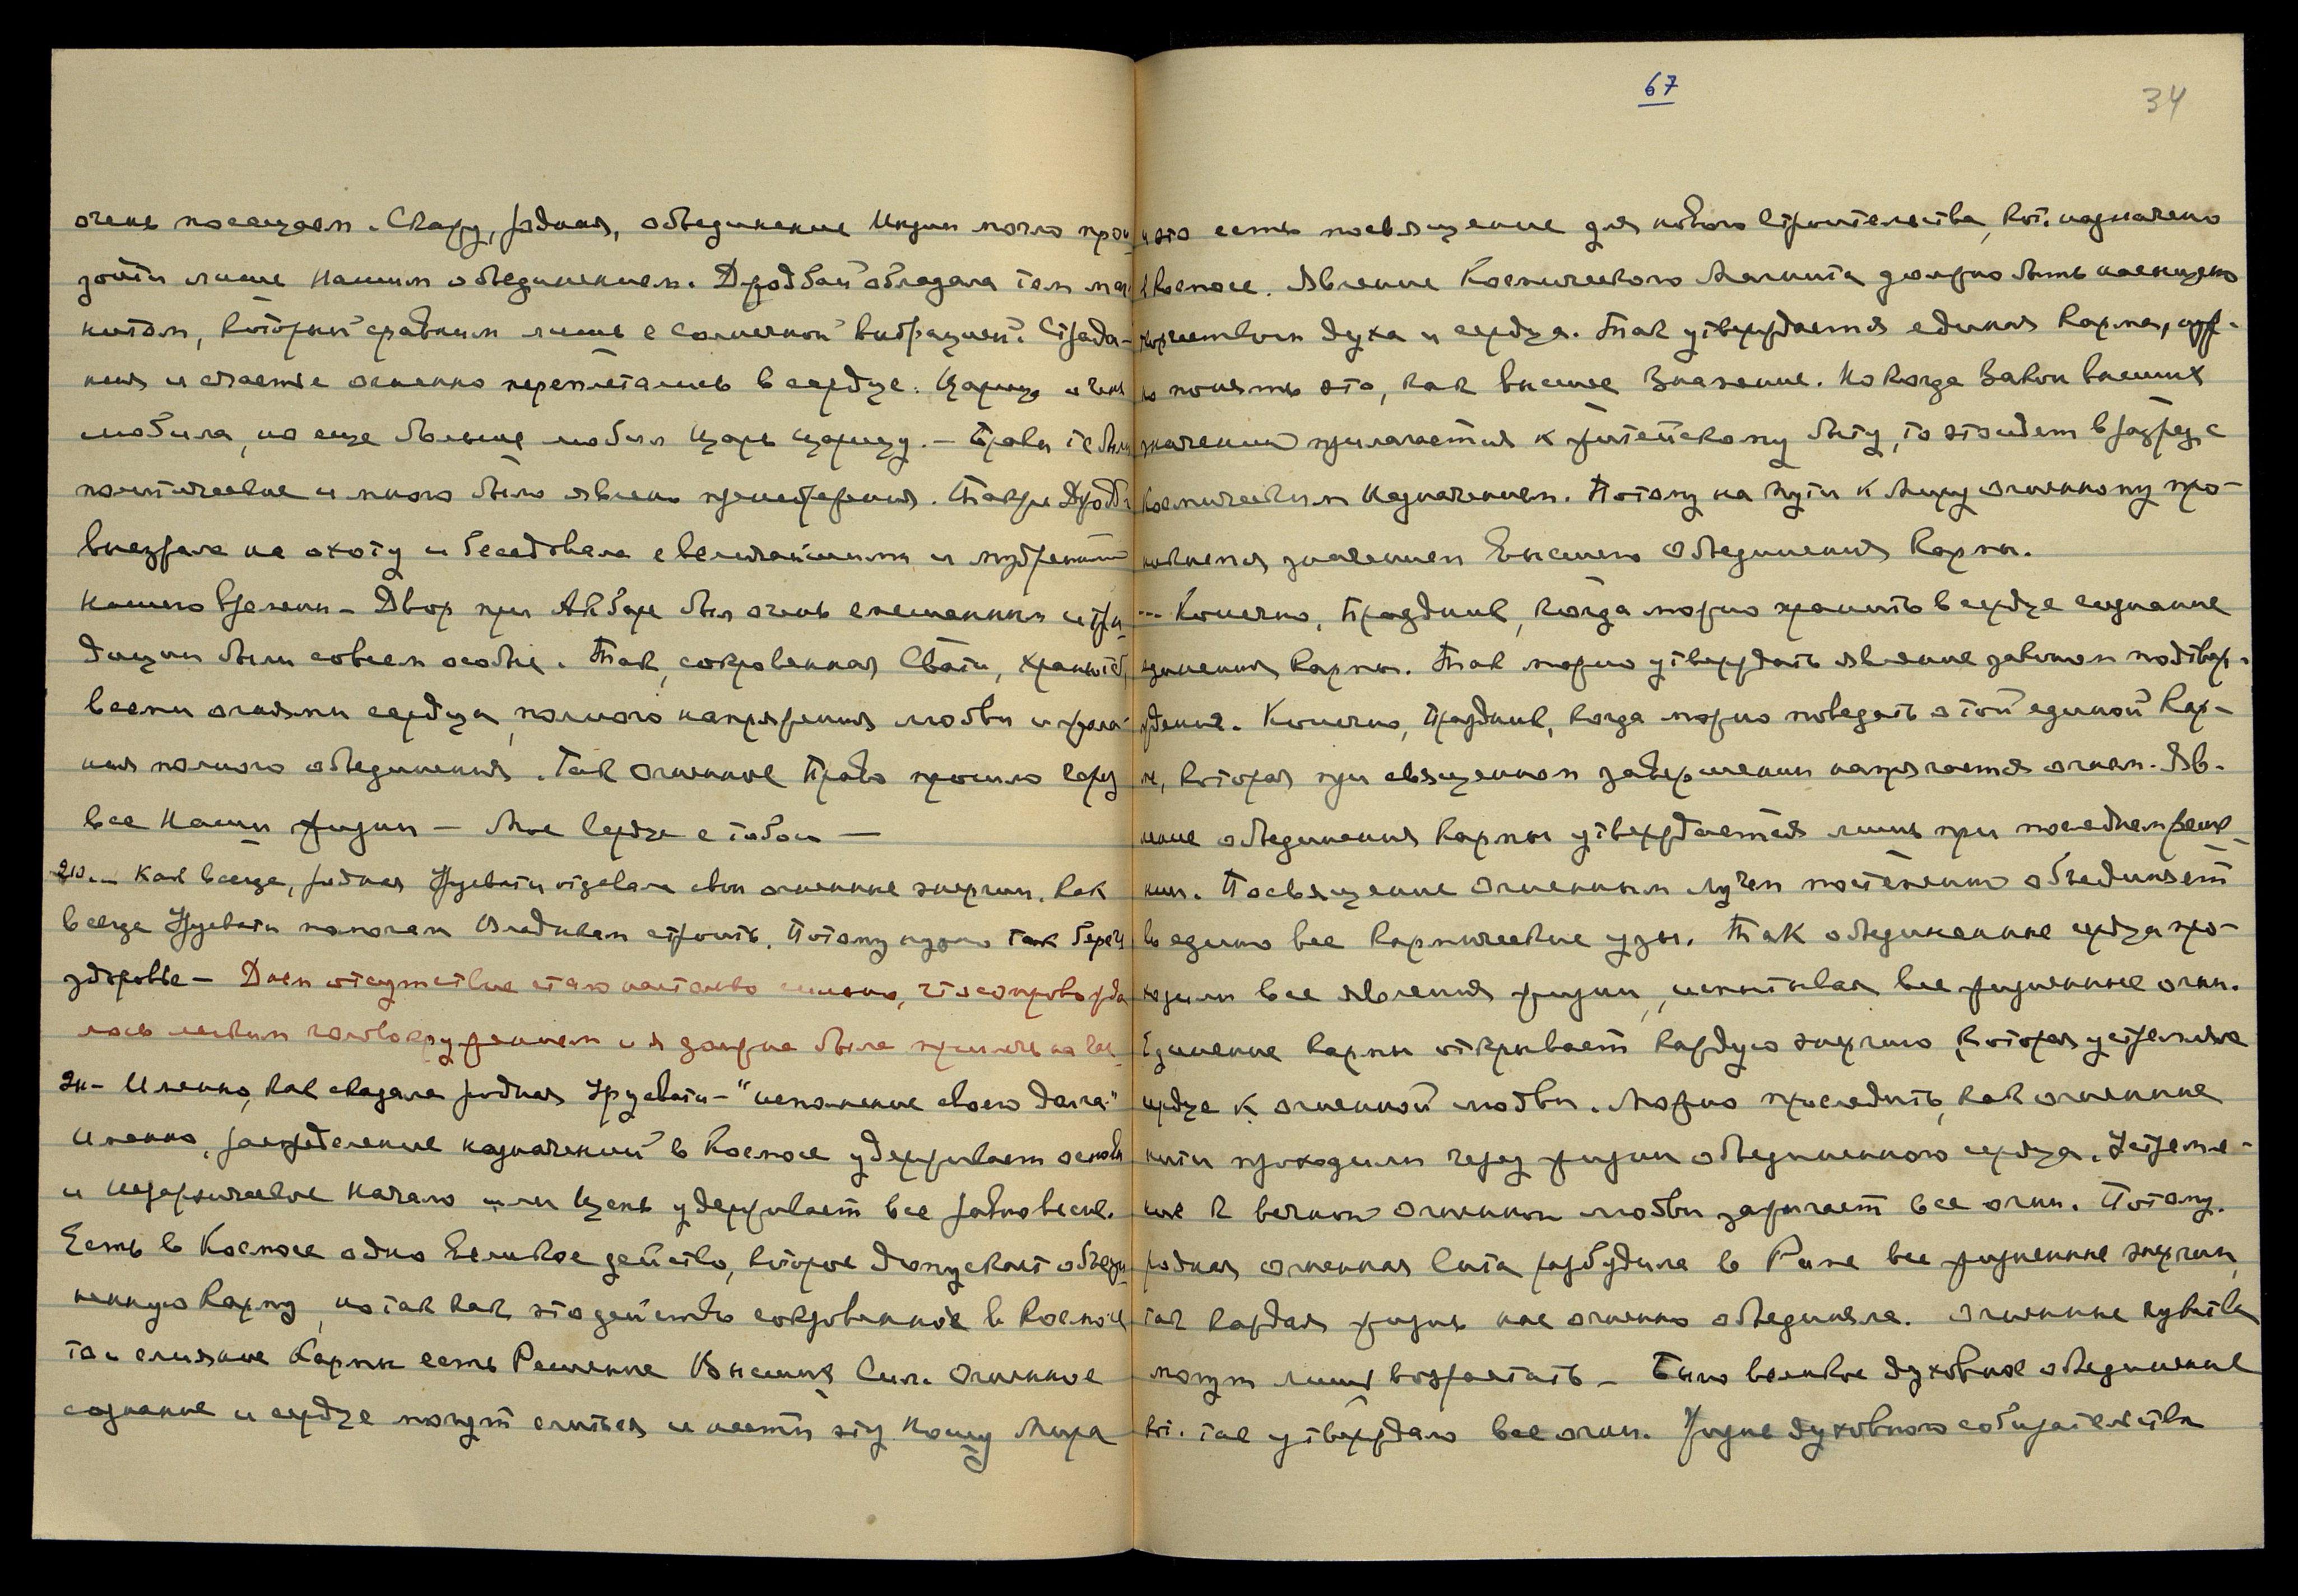 очень посещаем. Скажу, родная, объединение Индии могло прои
зойти лишь Нашим объединением. Джодбай обладала тем маг
нитом, который сравним лишь с солнечной вибрацией. Страда-
ния и счастье огненно переплетались в сердце. Царица очень
любила, но еще больше любил Царь царицу. — Права те были
политические и много было явлено пренебрежения. Также Джодба
выезжала на охоту и беседовала с величайшими и мудрейши
нашего времени — Двор при Акбаре был очень смешанным и тра
диции были совсем особые. Так, сокровенная Свати, хранитсь
всеми огнями сердца полного напряжения любви и жела-
ния полного объединения. Так огненное Право прошло через
все Наши жизни — Мое сердце с тобою —
20.— Как всегда, родная Урусвати отдавала свои огненные энергии. Как
всегда Урусвати помогает Владыкам строить. Потому нужно так беречь
здоровье — Днем отсутствие стало настолько сильно, что сопровожда
лось легким головокружением и я должна была прилечь на час
21— Именно, как сказала родная Урусвати — "исполнение своего долга."
Именно, распределение назначений в Космосе удерживает основы
и Иерархическое Начало или Цепь удерживает все равновесие.
Есть в Космосе одно Великое действо, которое допускает объеди
ненную Карму, но так как это действо сокровенное в Космосе
то и слияние Кармы есть Решение Высших Сил. Огненное
сознание и сердце могут слиться и нести эту Ношу Мира
67
34
и это есть посвящение для нового строительства, кот. назначено
в Космосе. Явление Космического Магнита должно быть насыщено
творчеством духа и сердца. Так утверждается единая Карма, нуж-
но понять это, как высшее Значение. Но когда Закон высших
значений прилагается к житейскому быту, то это идет вразрез с
Космическим Назначением. Потому на пути к Миру огненному про-
никнемся значением Высшего Объединения Кармы.
... Конечно, Праздник, когда можно хранить в сердце сознание
единения Кармы. Так можно утверждать явление законом подтвер-
ждения. Конечно, Праздник, когда можно поведать о той единой Кар-
ме, которая при священном завершении напрягается огнем. Яв-
ление объединения Кармы утверждается лишь при последнем реше-
нии. Посвящение Огненным Лучем постепенно объединяет
во едино все Кармические узы. Так объединенные сердца про-
ходили все явления жизни, испытывая все жизненные огни.
Единение Кармы открывает каждую энергию, которая устремляла
сердце к огненной любви. Можно проследить, как огненные
нити проходили через жизни объединенного сердца. Устремле-
ние к вечной Огненной любви зажигает все огни. Потому
родная огненная Сита разбудила в Раме все жизненные энергии,
так каждая жизнь нас огненно объединяла. Огненные чувства
могут лишь возрастать — Было великое духовное объединение
кот. так утверждало все огни. Жизнь духовного собирательства